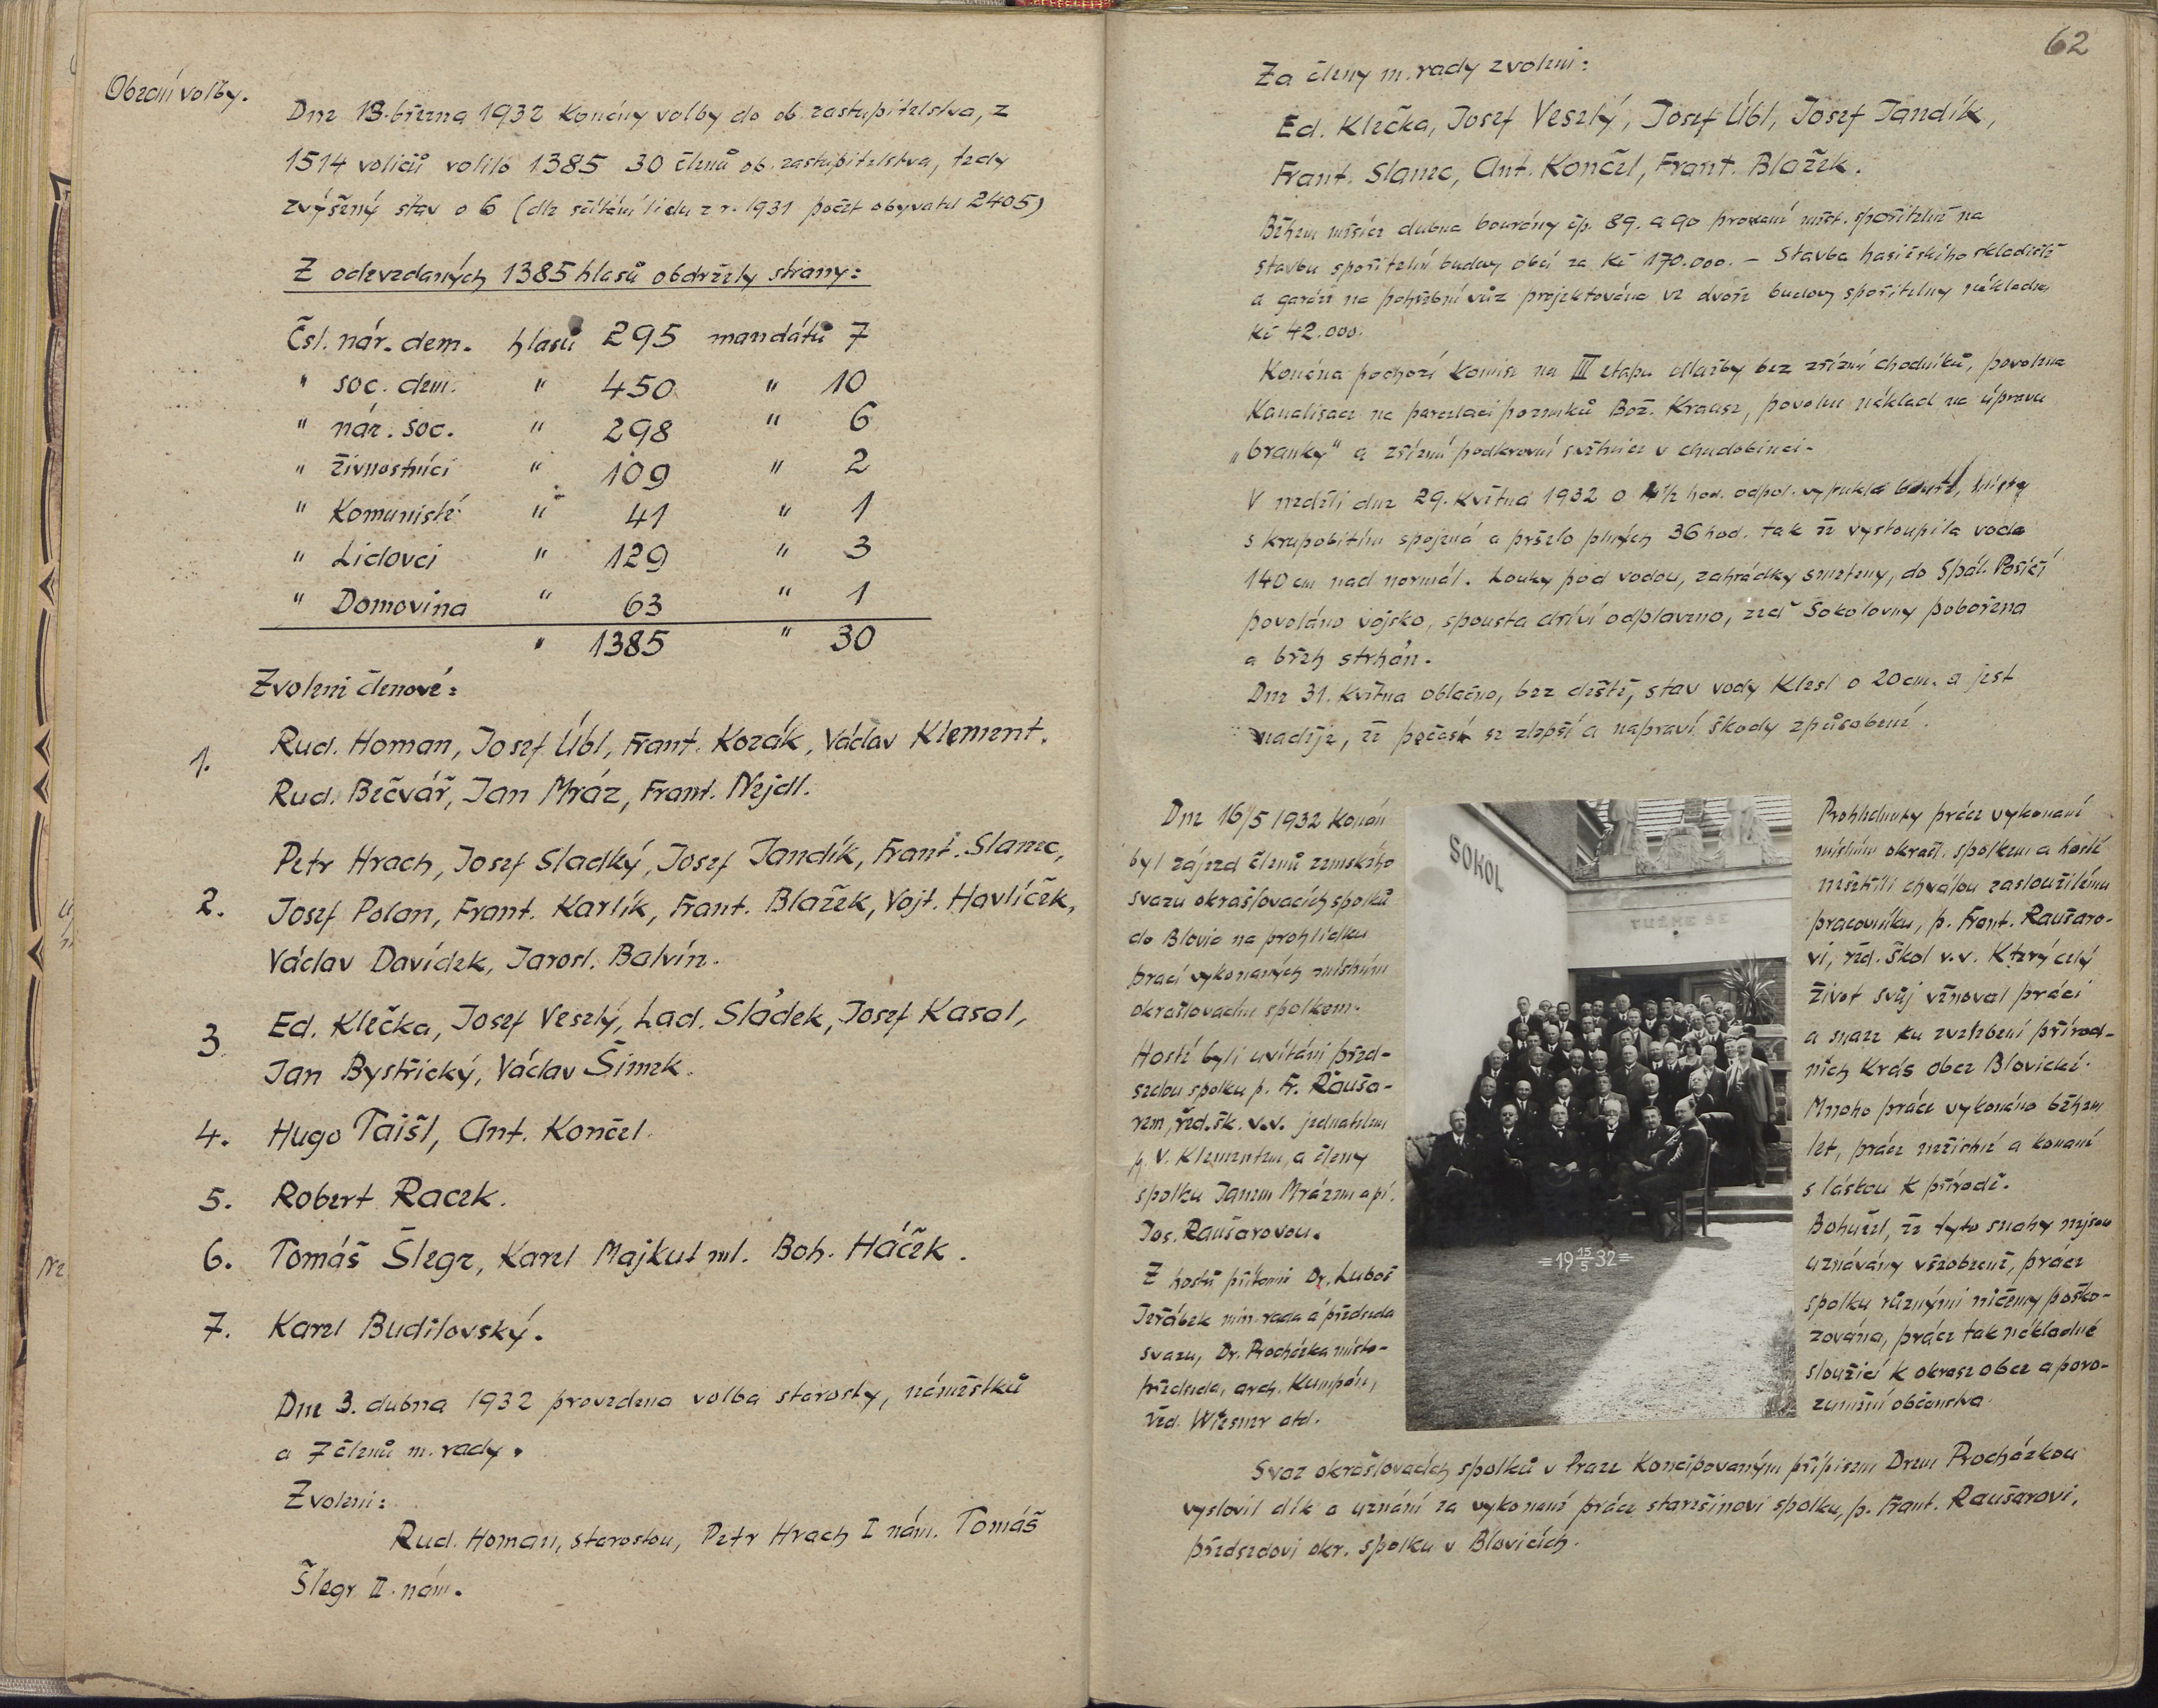 Obecní volby.
Dne 13. března 1932 konány volby do ob. zastupitelstva, z
1514 voličů volilo 1385 30 členů ob. zastupitelstva, tedy
zvýšený stav o 6 (dle sčítání lidu z r. 1931 počet obyvatel 2405)
Z odevzdaných 1385 hlasů obdržely strany:
Čsl. nár. dem. hlasů 295 mandátů 7
" soc. dem. " 450 " 10
" nár. soc. " 298 " 6
" Živnostníci " 109 " 2
" Komunisté " 41 " 1
" Lidovci " 129 " 3
" Domovina " 63 " 1
" 1385 " 30
Zvoleni členové:
1. Rud. Homan, Josef Úbl, Frant. Kozák, Václav Klement.
Rud. Bečvář, Jan Mráz, Frant. Nejdl.
2. Petr Hrach, Josef Sladký, Josef Jandík, Frant. Slanec,
Josef Polan, Frant. Karlík, Frant. Blažek, Vojt. Havlíček,
Václav Davídek, Jarosl. Balvín.
3. Ed. Klečka, Josef Veselý, Lad. Sládek, Josef Kasal,
Jan Bystřický, Václav Šimek.
4. Hugo Taišl, Ant. Končel.
5. Robert Racek.
6. Tomáš Šlegr, Karel Majkut ml. Boh. Háček.
7. Karel Budilovský.
Dne 3. dubna 1932 provedena volba starosty, náměstků
a 7 členů m. rady.
Zvoleni:
Rud. Homan, starostou, Petr Hrach I nám. Tomáš
Šlegr II. nám.
62
Za členy m. rady zvoleni:
Ed. Klečka, Josef Veselý, Josef Úbl, Josef Jandík,
Frant. Slanec, Ant. Končel, Frant. Blažek.
Během měsíce dubna bourány čp. 89. a 90 prodané měst. spořitelně na
stavbu spořitelní budovy obcí za Kč 170.000. – Stavba hasičského skladiště
a garáže na pohřební vůz projektována ve dvoře budovy spořitelny nákladem
Kč 42.000.
Konána pochozí komise na III etapu dlažby bez zřízení chodníků, povolena
kanalisace na parcelaci pozemků Bož. Kraase, povolen náklad na úpravu
„branky" a zřízení podkrovní světnice v chudobinci.
V neděli dne 29. května 1932 o ½ hod. odpol. vypukla bouře, místy
s krupobitím spojená a pršelo plných 36 hod. tak že vystoupila voda
140 cm nad normál. Louky pod vodou, zahrádky smeteny, do Spál. Poříčí
povoláno vojsko, spousta dříví odplaveno, zeď Sokolovny pobořena
a břeh strhán.
Dne 31. května oblačno, bez deště, stav vody klesl o 20 cm. a jest
naděje, že počasí se zlepší a napraví škody způsobené.
Dne 16/5 1932 konán
byl zájezd členů zemského
svazu okrašlovacích spolků
do Blovic na prohlídku
prací vykonaných místním
okrašlovacím spolkem.
Hosté byli uvítáni před-
sedou spolku p. Fr. Rauša-
rem, řed. šk. v.v. jednatelem
p. V. Klementem, a členy
spolku Janem Mrázem a pí.
Jos. Raušarovou.
Z hostů přítomni Dr. Luboš
Jeřábek min. rada a předseda
svazu, Dr. Procházka místo-
předseda, arch. Kumpán,
řed. Wiesner atd.
SOKOL
TUŽME SE
=19 15/5 32=
Prohlednuty práce vykonané
místním okrašl. spolkem a hosté
nešetřili chválou zasloužilému
pracovníku, p. Frant. Raušaro-
vi, řed. škol v.v. který celý
život svůj věnoval práci
a snaze ku zvelebení přírod-
ních krás obce Blovické.
Mnoho práce vykonáno během
let, práce nezištné a konané
s láskou k přírodě.
Bohužel, že tyto snahy nejsou
uznávány všeobecně, práce
spolku různými ničemy poško-
zována, práce tak nákladné
sloužící k okrase obce a poro-
zumění občanstva.
Svaz okrašlovacích spolků v Praze koncipovaným přípisem Drem Procházkou
vyslovil dík a uznání za vykonané práce starešinovi spolku, p. Frant. Raušarovi,
předsedovi okr. spolku v Blovicích.